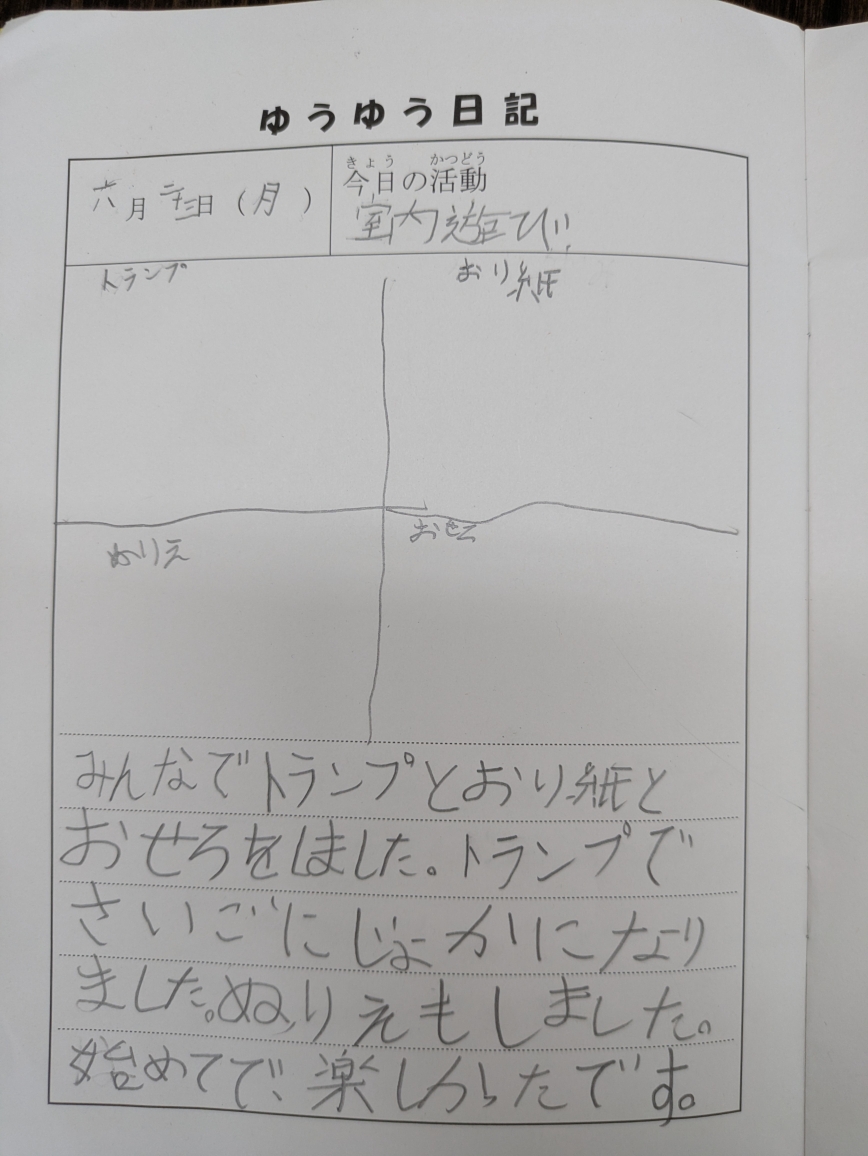 ゆうゆう日記
六月二十三日(月)
きょう かつどう
今日の活動
室内遊び
トランプ
おり紙
ぬりえ
おせろ
みんなでトランプとおり紙と
おせろをしました。トランプで
さいごにじょかりになり
ました。ぬりえもしました。
始めてで、楽しかったです。